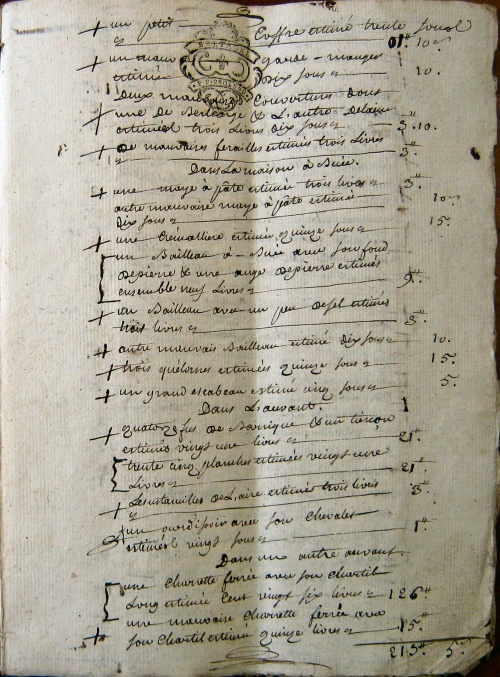 + un petit Coffre estimé trente sous 01# 10s
+ un mauvais garde-manger
estimé Dix sous 10.
Deux mauvaises Couverture Dont
+ une De Berlange & L'autre Delaine
estimées trois Livres Dix sous 3# 10.
+ De mauvaises ferailles estimées trois Livres 3#
Dans La maison à Buée.
+ une maye à pâte estimée trois livres 3#
autre mauvaise maye à pâte estimée
Dix sous 10s
+ une Crémalliere estimée quinze sous 15s
un Bailleau à Buée avec son fond
De pierre & une auge De pierre estimés
ensemble neuf Livres 9#
+ un Bailleau avec un peu De sel estimés
trois livres 3#
+ autre mauvais Bailleau estimé Dix sous 10.
+ trois estimées quinze sous 15s
+ un grand escabeau estimé cinq sous 5s
Dans L'auvant.
+ quatorze fus De Barrique & un tierçon
estimés vingt une livres 21#
trente cinq planches estimées vingt une
Livres 21#
+ Les De L'aire estimées trois livres 3#
+ un ourdissoir avec son Chevalet
estimés vingt sous 1#
Dans un autre auvant.
une Charrette ferrée avec son Chartil
Long estimée Cent vingt six livres 126#
une mauvaise Charrette ferrée avec
+ son Chartil estimée quinze livres 15#
213# 5s